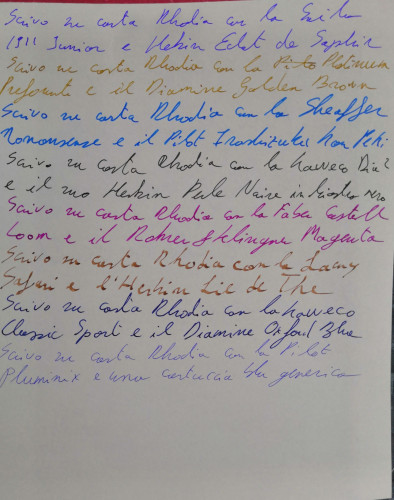 Scrivo su carta Rhodia con la Sailor
1911 Junior e Herbin Eclat de Saphir
Scrivo su carta Rhodia con la Platinum
Preferante e il Diamine Golden Brown
Scrivo su carta Rhodia con la Sheaffer
Nononsense e il Pilot Iroshizuku Kon Peki
Scrivo su carta Rhodia con la Kaweco Dia2
e il suo Herbin Perle Noire inchiostro nero
Scrivo su carta Rhodia con la Faber Castell
Loom e il Rohrer & Klingner Magenta
Scrivo su carta Rhodia con la Lamy
Safari e l'Herbin Lie de The
Scrivo su carta Rhodia con la Kaweco
Classic Sport e il Diamine Oxford Blue
Scrivo su carta Rhodia con la Pilot
Pluminix e una cartuccia blu generica